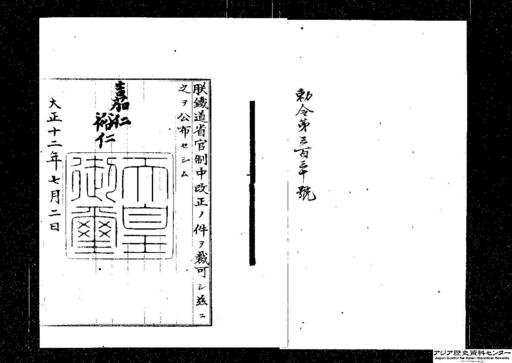 勅令第三百三十號
朕鐵道省官制中改正ノ件ヲ裁可シ茲ニ
之ヲ公布セシム
嘉仁
裕仁
天皇
御璽
大正十二年七月二日
アジア歴史資料センター
Japan Center for Asian Historical Records